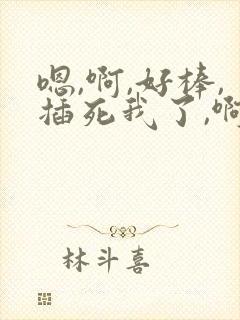 嗯,啊,好棒,
插死我了,啊
林斗喜